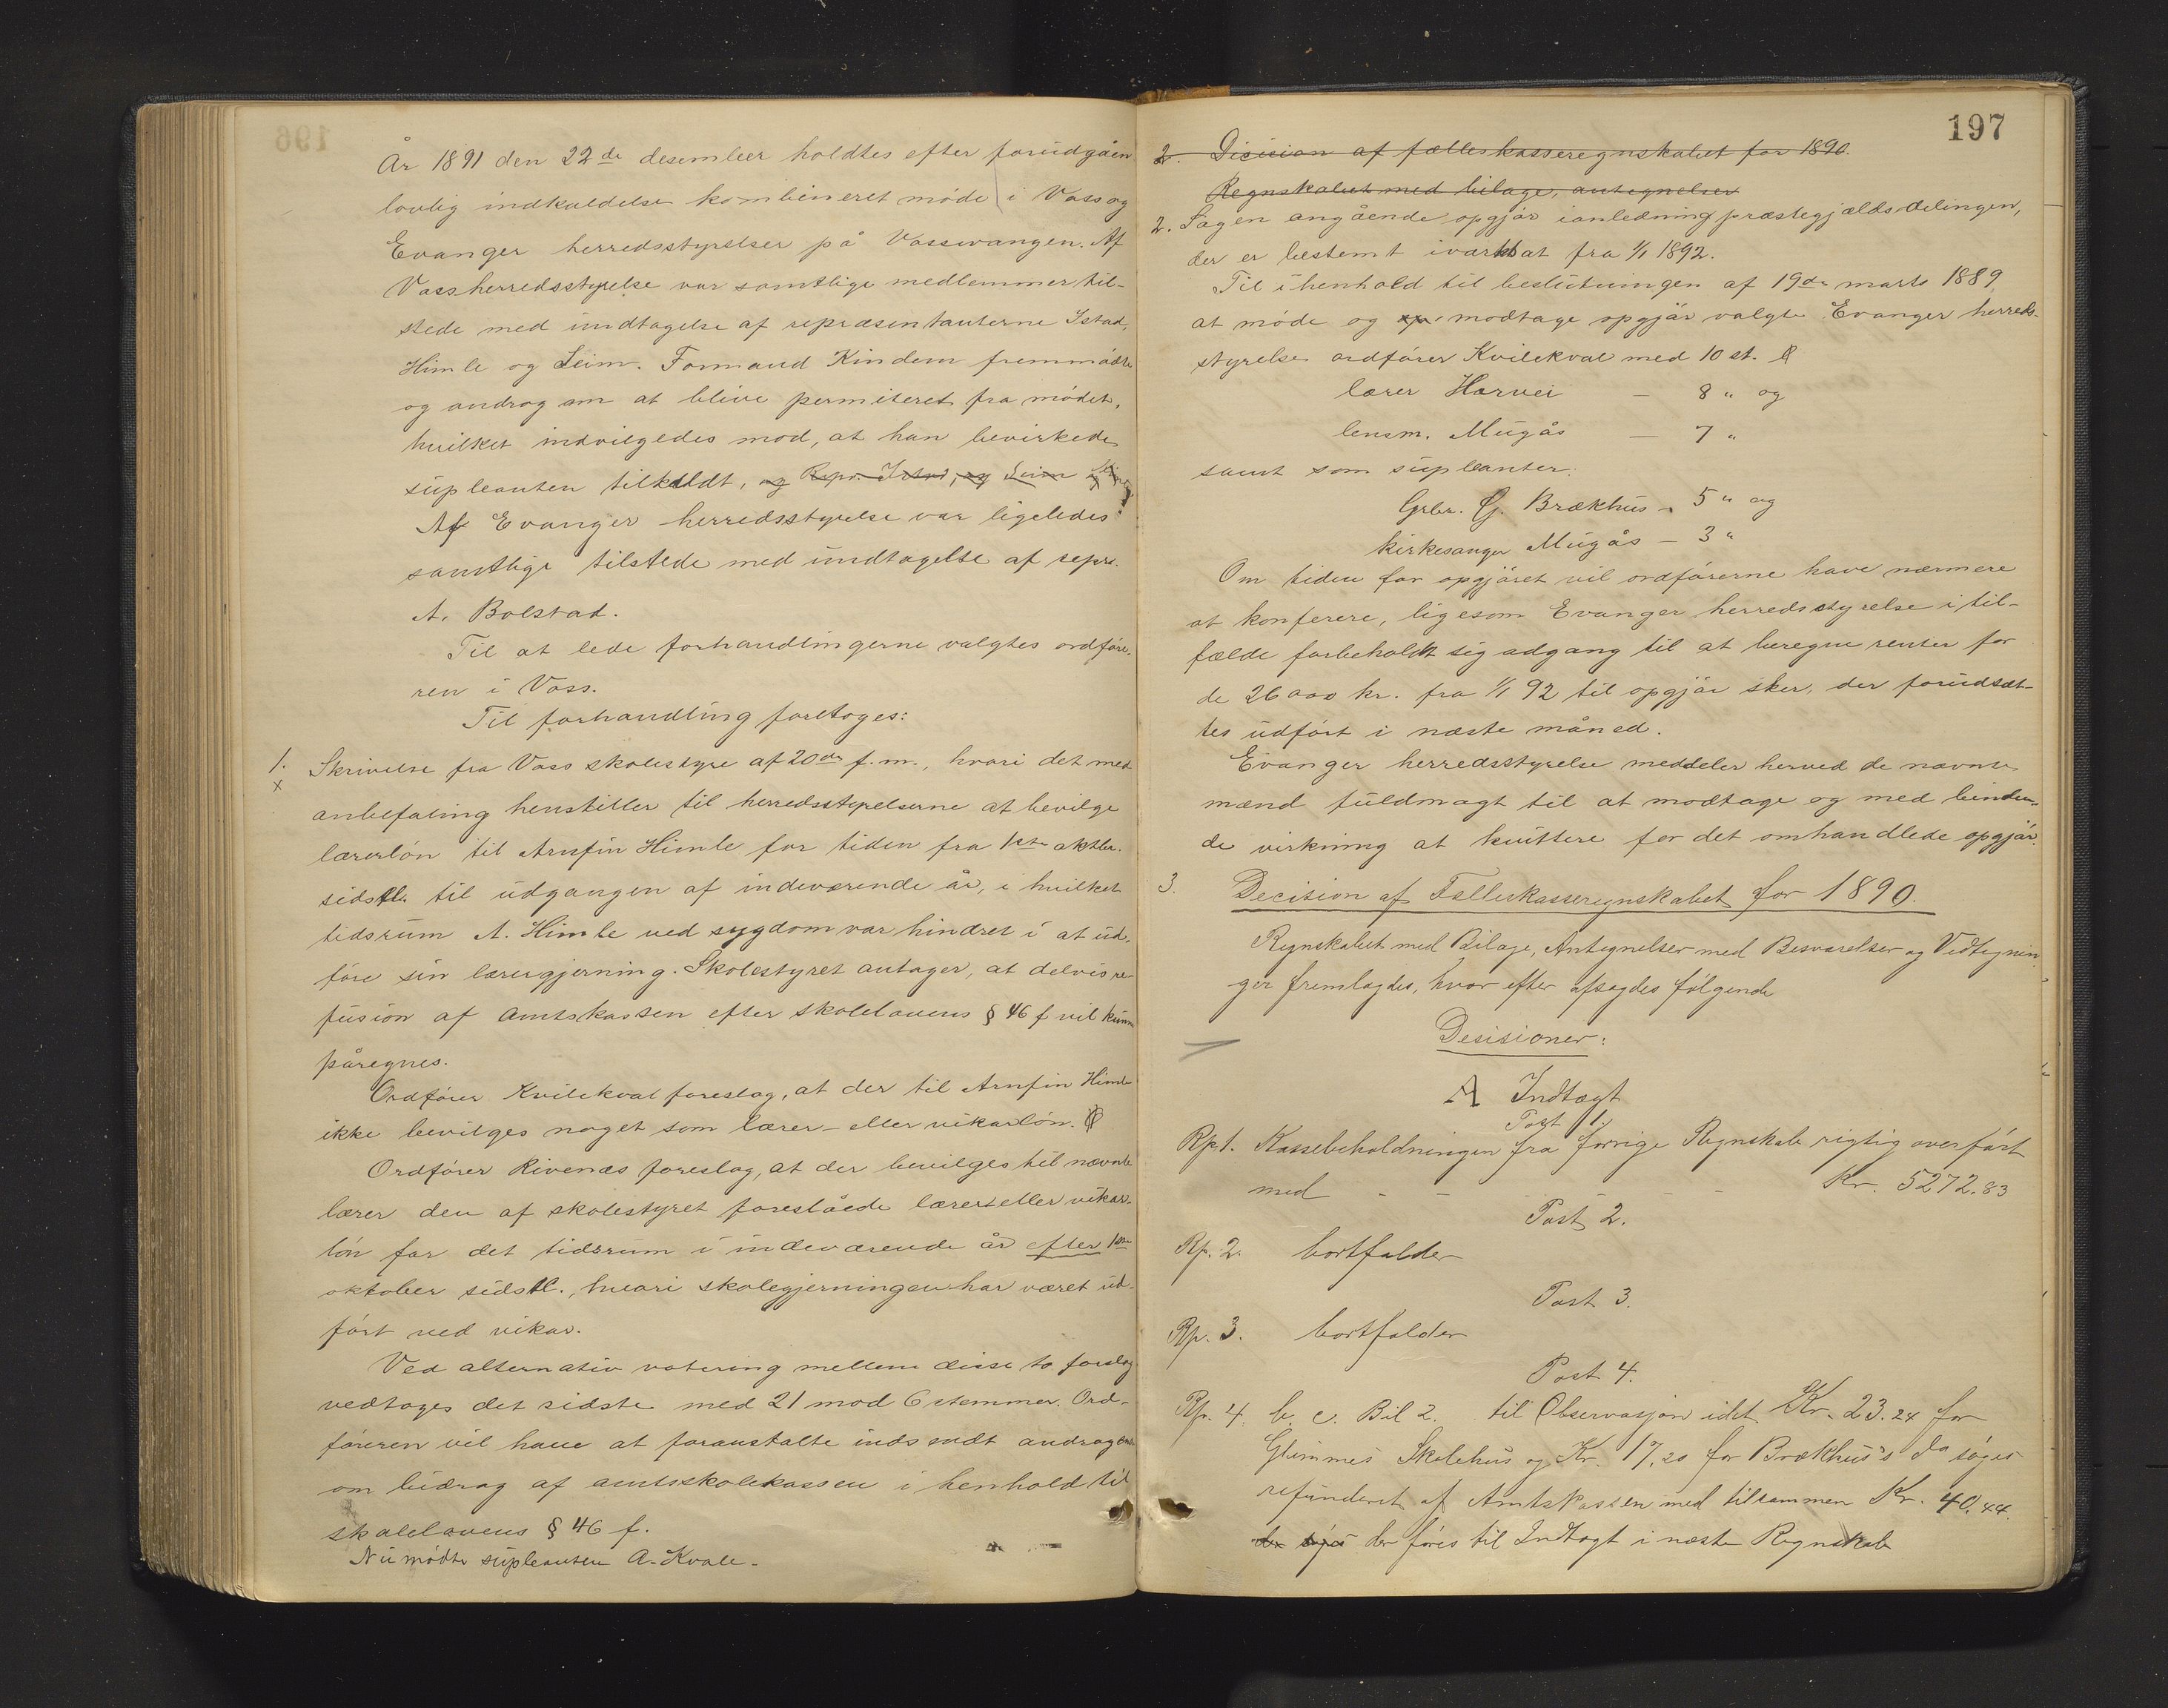 År 1891 den 22de desember holdtes efter forudgåen
lovlig indkaldelse kombineret møde i Voss og
Evanger herredsstyrelser på Vossevangen. Af
Voss herredsstyrelse var samtlige medlemmer til-
stede med undtagelse af repræsentanterne Istad,
Himle og Leim. Formand Kindem fremmødte
og androg om at blive permiteret fra mødet,
hvilket indvilgedes mod, at han bevirkede
supleanten tilkaldt, og Repr. Istad, og Leim
Af Evanger herredsstyrelse var ligeledes
samtlige tilstede med undtagelse af repr.
A. Bolstad.
Til at lede forhandlingerne valgtes ordføre-
ren i Voss.
Til forhandling foretoges:
1. Skrivelse fra Voss skolestyre af 20de f.m., hvori det med
x
anbefaling henstiller til herredsstyrelserne at bevilge
lærerløn til Arnfin Himle for tiden fra 1ste oktbr.
sidstl. til udgangen af indeværende år, i hvilket
tidsrum A. Himle ved sygdom var hindret i at ud-
føre sin lærergjerning. Skolestyret antager, at delvis re-
fusion af amtskassen efter skolelovens § 46 f vil kunne
påregnes.
Ordfører Kvilekval foreslog, at der til Arnfin Himle
ikke bevilges noget som lærer- eller vikarløn.
Ordfører Rivenæs foreslog, at der bevilges til nævnte
lærer den af skolestyret foreslåede lærer eller vikar-
løn for det tidsrum i indeværende år efter 1ste
oktober sidstl., hvori skolegjerningen har været ud-
ført ved vikar.
Ved alternativ votering mellem disse to forslag
vedtoges det sidste med 21 mod 6 stemmer. Ord-
føreren vil have at foranstalte indsendt andragende
om bidrag af amtsskolekassen i henhold til
skolelovens § 46 f.
Nu mødte supleanten A. Kvale.
197
2. Dicision af fælleskasseregnskabet for 1890.
Regnskabet med bilage, antegnelser
2. Sagen angående opgjør i anledning præstegjældsdelingen,
der er bestemt iværksat fra 1/1 1892.
Til i henhold til beslutningen af 19de marts 1889
at møde og modtage opgjør valgte Evanger herreds-
styrelse ordfører Kvilekval med 10 st.
lærer Horvei — 8 " og
lensm. Mugås — 7 "
samt som supleanter:
Grbr. G. Brækhus - 5 " og
kirkesanger Mugås — 3 "
Om tiden for opgjøret vil ordførerne have nærmere
at konferere, ligesom Evanger herredsstyrelse i til-
fælde forbeholdt sig adgang til at beregne renter for
de 26000 kr. fra 1/1 92 til opgjør sker, der forudsæt-
tes udført i næste måned.
Evanger herredsstyrelse meddeler herved de nævnte
mænd fuldmagt til at modtage og med binden-
de virkning at kvittere for det omhandlede opgjør.
3. Decision af Fælleskasseregnskabet for 1890.
Regnskabet med Bilage, Antegnelser med Besvarelser og Vedtegnin
ger fremlagdes, hvor efter afsagdes følgende
Desisioner:
A Indtægt
Post 1.
Rp 1. Kassebeholdningen fra forrige Regnskab rigtig overført
med - - - - - - Kr. 5272.83
Post 2.
Rp. 2. bortfalder
Post 3.
Rp. 3. bortfalder
Post 4.
Rp. 4. b. c. Bil 2. til Observasjon idet Kr. 23.24 for
Glimmes Skolehus og Kr. 17.20 for Brækhus's do søges
refunderet af Amtskassen med tilsammen Kr. 40.44.
der søges der føres til Indtægt i næste Regnskab